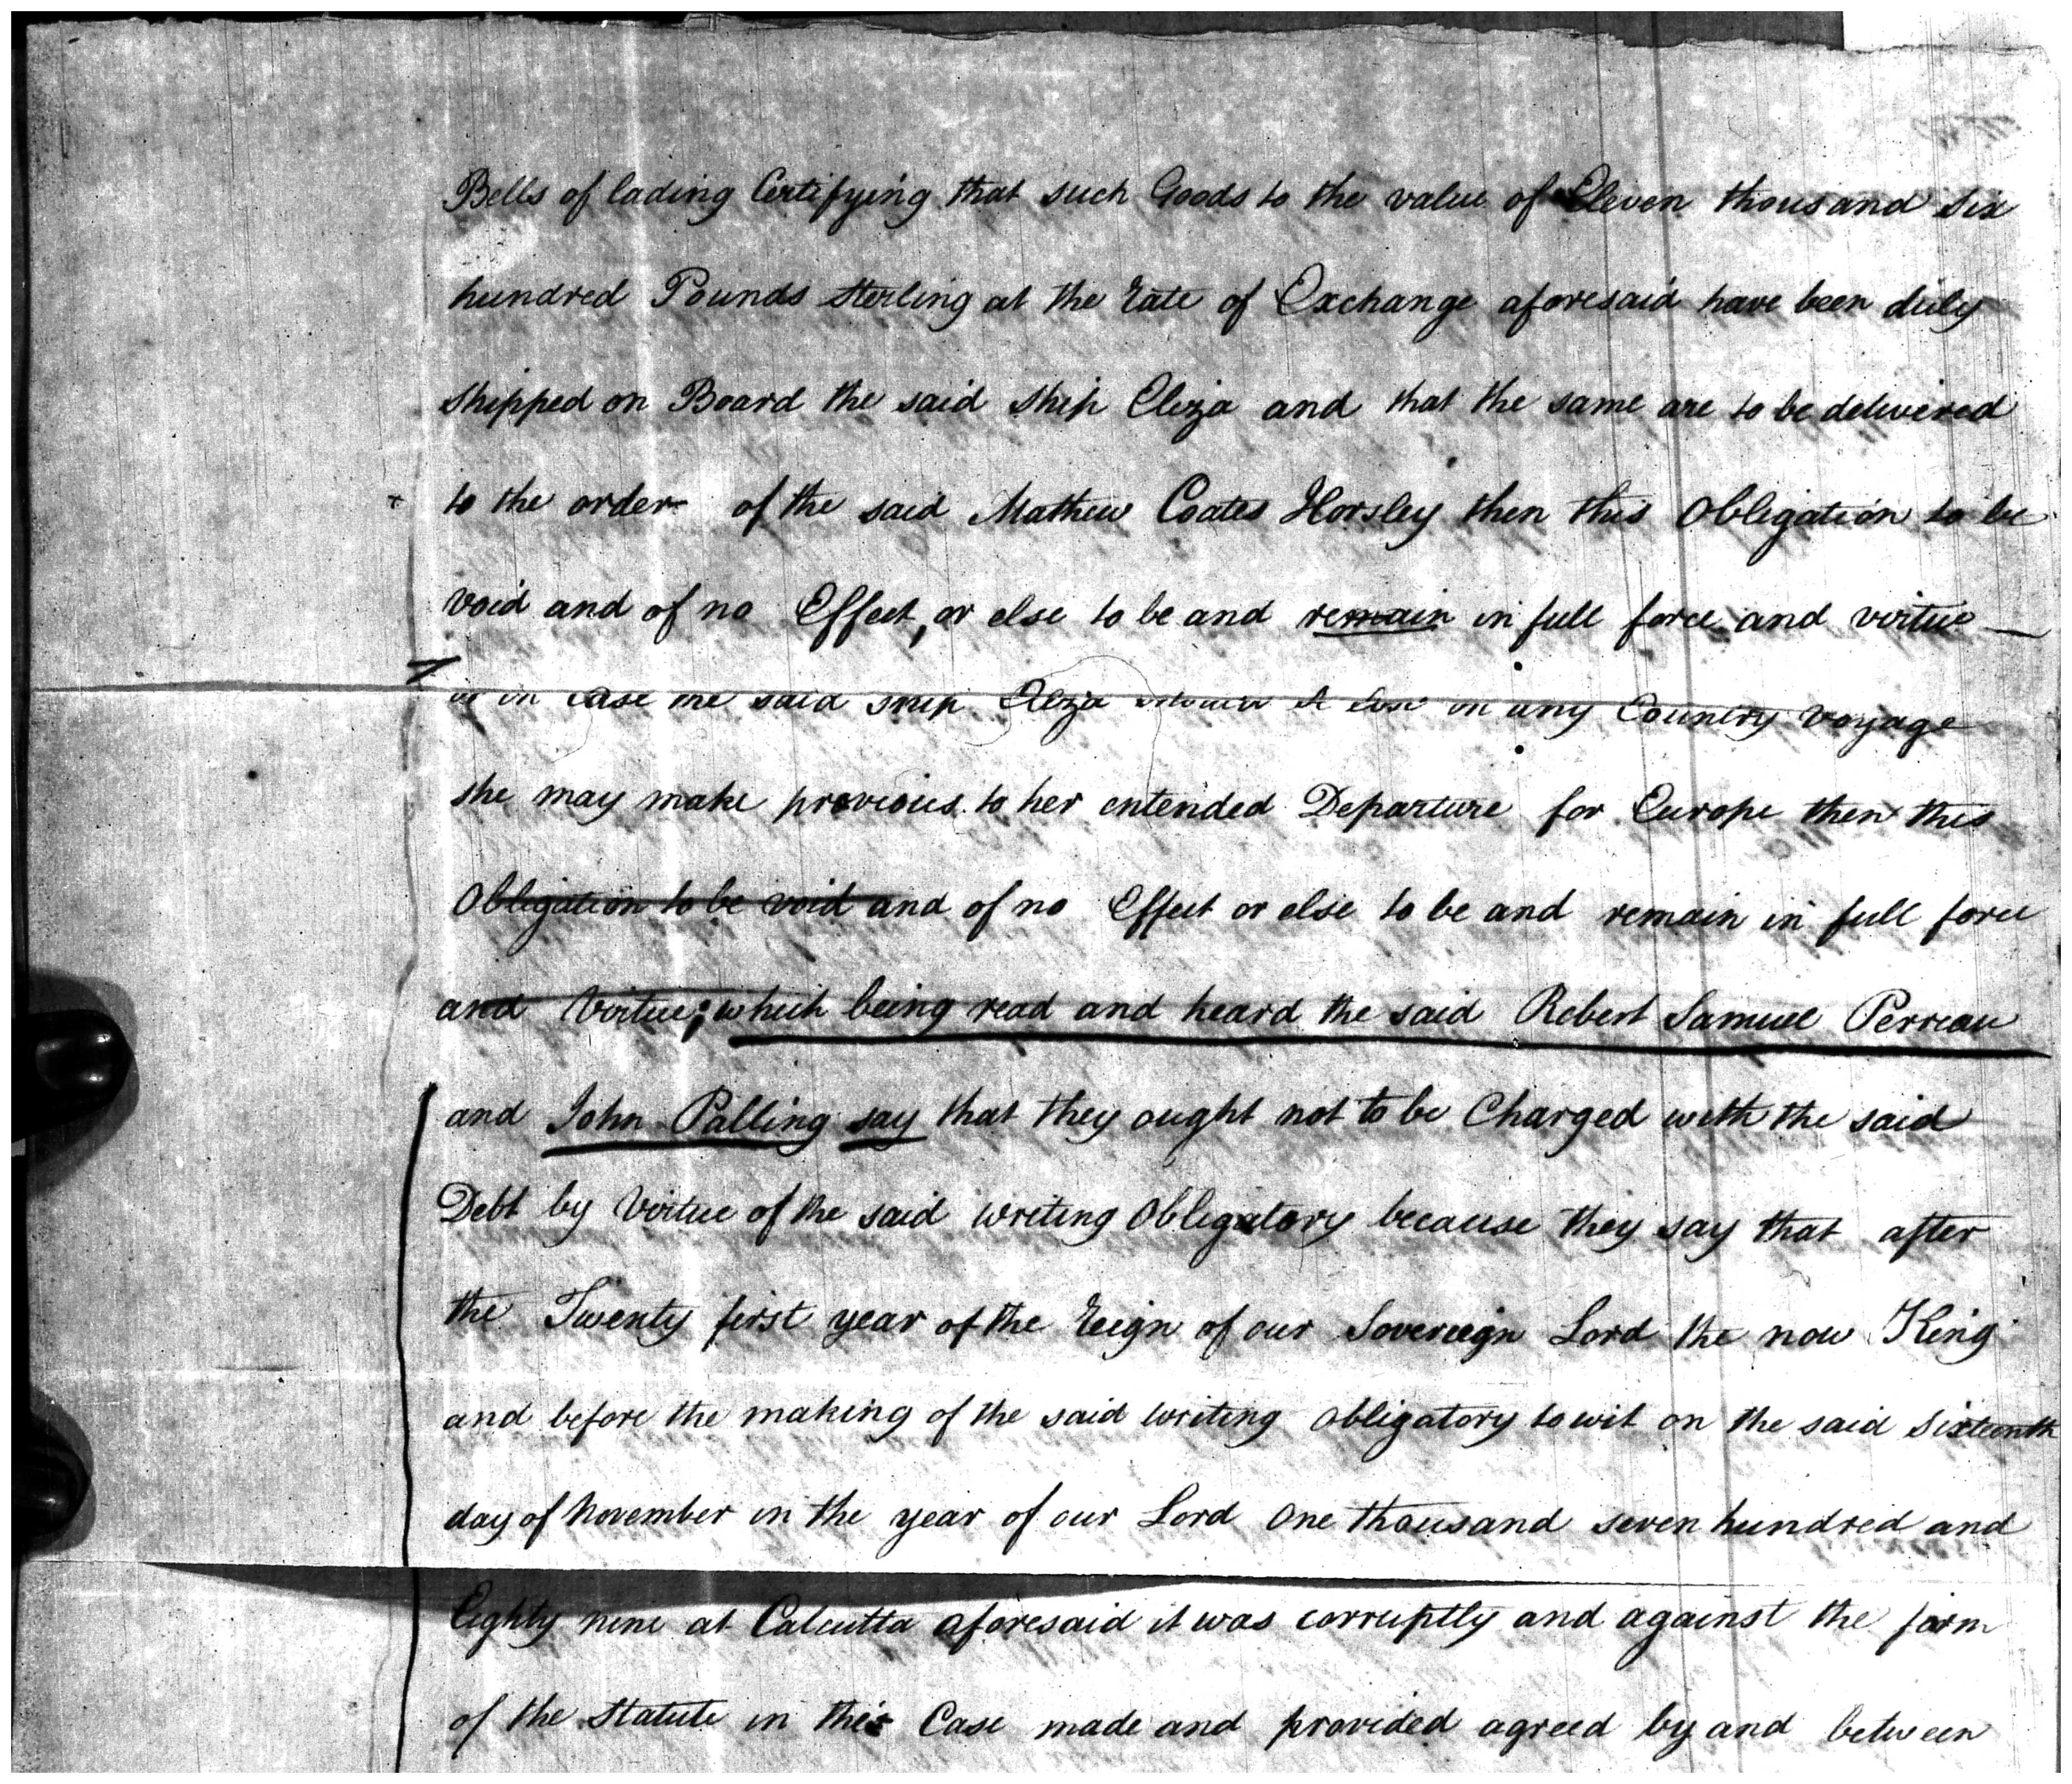 Bills of lading Certifying that such Goods to the value of Eleven thousand six
hundred Pounds sterling at the rate of Exchange aforesaid have been duly
shipped on Board the said ship Eliza and that the same are to be delivered
to the order of the said Mathew Coates Horsley then this Obligation to be
void and of no Effect, or else to be and remain in full force and virtue —
or in case the said ship Eliza should be lost on any Country voyage
she may make previous to her intended Departure for Europe then this
Obligation to be void and of no Effect or else to be and remain in full force
and Virtue; which being read and heard the said Robert Samuel Perreau
and John Palling say that they ought not to be Charged with the said
Debt by Virtue of the said writing Obligatory because they say that after
the Twenty first year of the reign of our Sovereign Lord the now King
and before the making of the said writing obligatory to wit on the said sixteenth
day of November in the year of our Lord One thousand seven hundred and
Eighty nine at Calcutta aforesaid it was corruptly and against the form
of the Statute in this Case made and provided agreed by and between